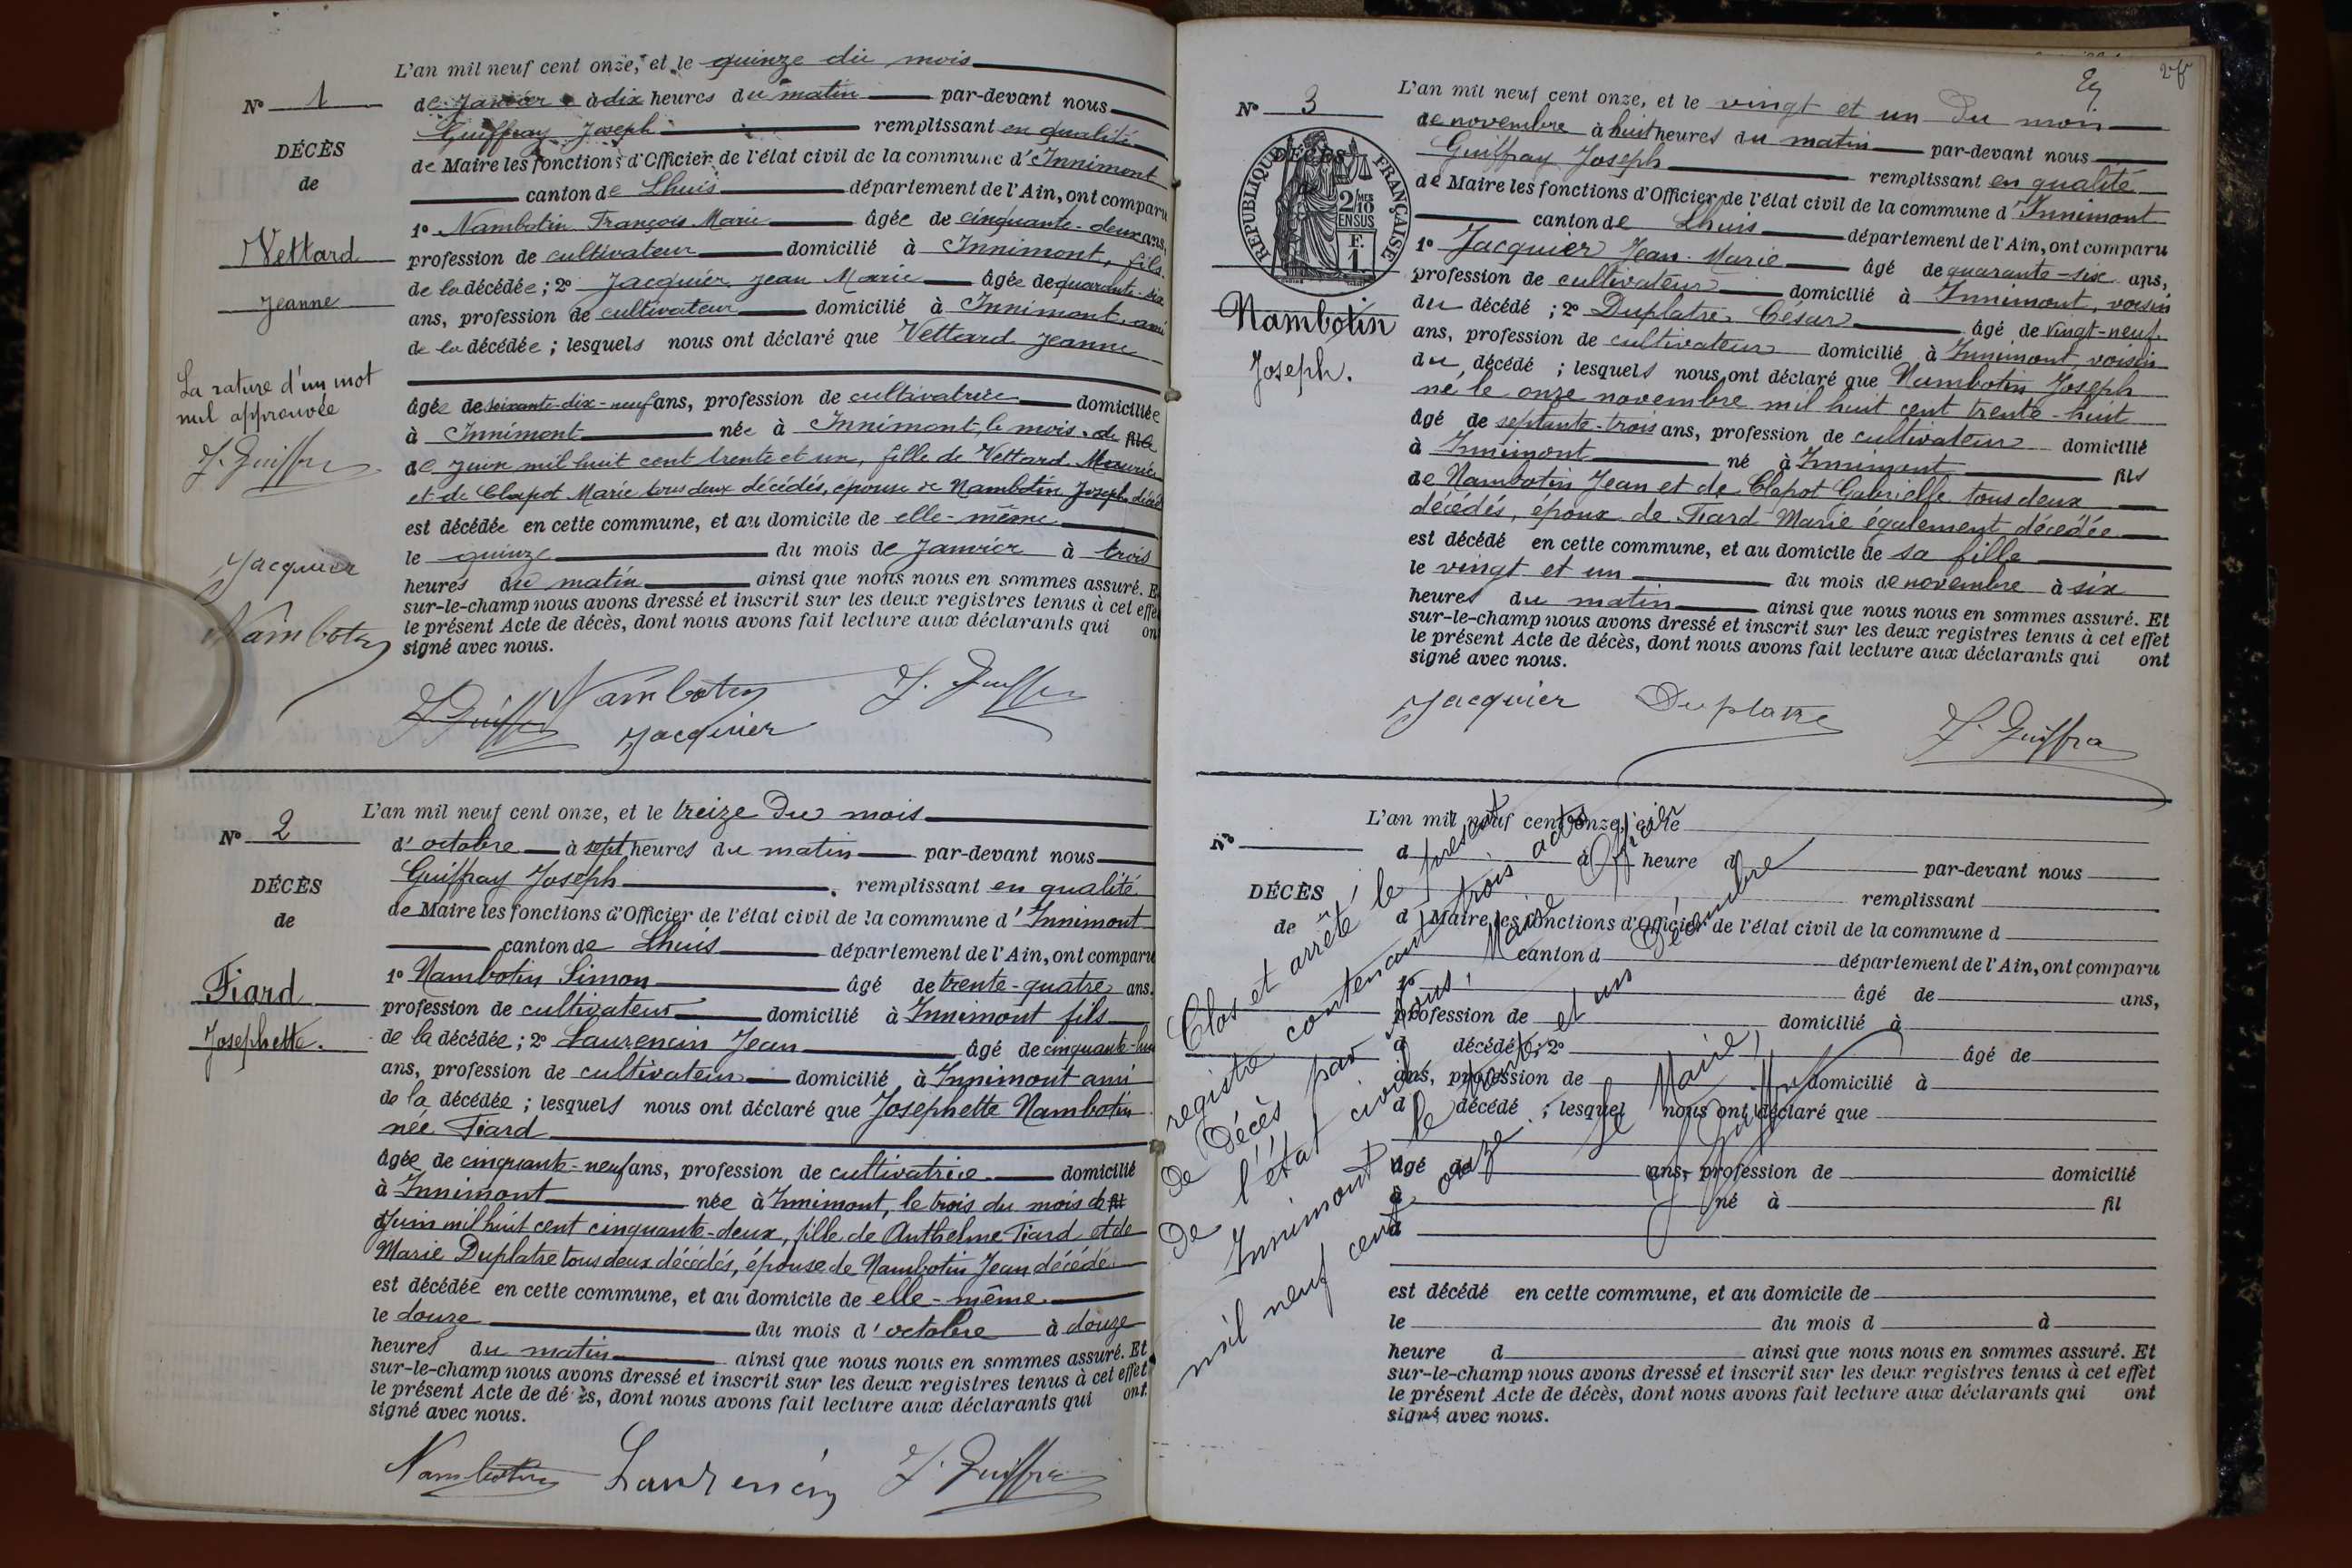 L'an mil neuf cent onze, et le quinze du mois
N° 1
de Janvier à dix heures du matin par-devant nous
Guiffray Joseph remplissant en qualité
DÉCÈS
de Maire les fonctions d'Officier de l'état civil de la commune d'Innimont
de
canton de Lhuis département de l'Ain, ont comparu
1° Nambotin François Marie âgée de cinquante-deux ans,
Vettard
profession de cultivateur domicilié à Innimont, fils
de la décédée ; 2° Jacquier Jean Marie âgée de quarante-six
Jeanne
ans, profession de cultivateur domicilié à Innimont, ami
de la décédée ; lesquels nous ont déclaré que Vettard Jeanne
La rature d'un mot
nul approuvée
J. Guiffra
âgée de soixante-dix-neuf ans, profession de cultivatrice domiciliée
à Innimont née à Innimont, le mois de fille
de Juin mil huit cent trente et un, fille de Vettard Maurice
et de Clapot Marie tous deux décédés, épouse de Nambotin Joseph décédé
est décédée en cette commune, et au domicile de elle-même
le quinze du mois de Janvier à trois
Jacquier
heures du matin ainsi que nous nous en sommes assuré. Et
sur-le-champ nous avons dressé et inscrit sur les deux registres tenus à cet effet
Nambotin
le présent Acte de décès, dont nous avons fait lecture aux déclarants qui ont
signé avec nous.
J. Guiffra Nambotin J. Guiffra
Jacquier
L'an mil neuf cent onze, et le treize du mois
N° 2
d'octobre à sept heures du matin par-devant nous
Guiffray Joseph remplissant en qualité
DÉCÈS
de Maire les fonctions d'Officier de l'état civil de la commune d'Innimont
de
canton de Lhuis département de l'Ain, ont comparu
1° Nambotin Simon âgé de trente-quatre ans.
Tiard
profession de cultivateur domicilié à Innimont fils
Josephette.
de la décédée ; 2° Laurencin Jean âgé de cinquante-huit
ans, profession de cultivateur domicilié à Innimont ami
de la décédée ; lesquels nous ont déclaré que Josephette Nambotin
née Tiard
âgée de cinquante-neuf ans, profession de cultivatrice domicilié
à Innimont née à Innimont, le trois du mois de fil
Juin mil huit cent cinquante-deux, fille de Anthelme Tiard et de
Marie Duplatre tous deux décédés, épouse de Nambotin Jean décédé
est décédée en cette commune, et au domicile de elle-même
le douze du mois d'octobre à douze
heures du matin ainsi que nous nous en sommes assuré. Et
sur-le-champ nous avons dressé et inscrit sur les deux registres tenus à cet effet
le présent Acte de décès, dont nous avons fait lecture aux déclarants qui ont
signé avec nous.
Nambotin Laurencin J. Guiffra
L'an mil neuf cent onze, et le vingt et un du mois
N° 3
de novembre à huit heures du matin par-devant nous
Guiffray Joseph remplissant en qualité
DÉCÈS
RÉPUBLIQUE FRANÇAISE
2/10 MES
EN SUS
F.
1
de Maire les fonctions d'Officier de l'état civil de la commune d'Innimont
canton de Lhuis département de l'Ain, ont comparu
1° Jacquier Jean-Marie âgé de quarante-six ans,
profession de cultivateur domicilié à Innimont, voisin
Nambotin
Joseph.
du décédé ; 2° Duplatre César âgé de vingt-neuf
ans, profession de cultivateur domicilié à Innimont, voisin
du décédé ; lesquels nous ont déclaré que Nambotin Joseph
né le onze novembre mil huit cent trente-huit
âgé de septante-trois ans, profession de cultivateur domicilié
à Innimont né à Innimont fils
de Nambotin Jean et de Clapot Gabrielle tous deux
décédés, époux de Tiard Marie également décédée
est décédé en cette commune, et au domicile de sa fille
le vingt et un du mois de novembre à six
heures du matin ainsi que nous nous en sommes assuré. Et
sur-le-champ nous avons dressé et inscrit sur les deux registres tenus à cet effet
le présent Acte de décès, dont nous avons fait lecture aux déclarants qui ont
signé avec nous.
Jacquier Duplatre J. Guiffra
L'an mil neuf cent onze, et le
N°
d à heure d par-devant nous
remplissant
DÉCÈS
d Maire les fonctions d'Officier de l'état civil de la commune d
de
canton d département de l'Ain, ont comparu
1° âgé de ans,
profession de domicilié à
d décédé ; 2° âgé de
ans, profession de domicilié à
d décédé ; lesquel nous ont déclaré que
âgé de ans, profession de domicilié
à né à fil
d
est décédé en cette commune, et au domicile de
le du mois d à
heure d ainsi que nous nous en sommes assuré. Et
sur-le-champ nous avons dressé et inscrit sur les deux registres tenus à cet effet
le présent Acte de décès, dont nous avons fait lecture aux déclarants qui ont
signé avec nous.
Clos et arrêté le présent
registre contenant trois actes
de Décès par nous, Maire Officier
de l'état civil
Innimont le trente et un Décembre
mil neuf cent onze.
Le Maire,
J. Guiffra